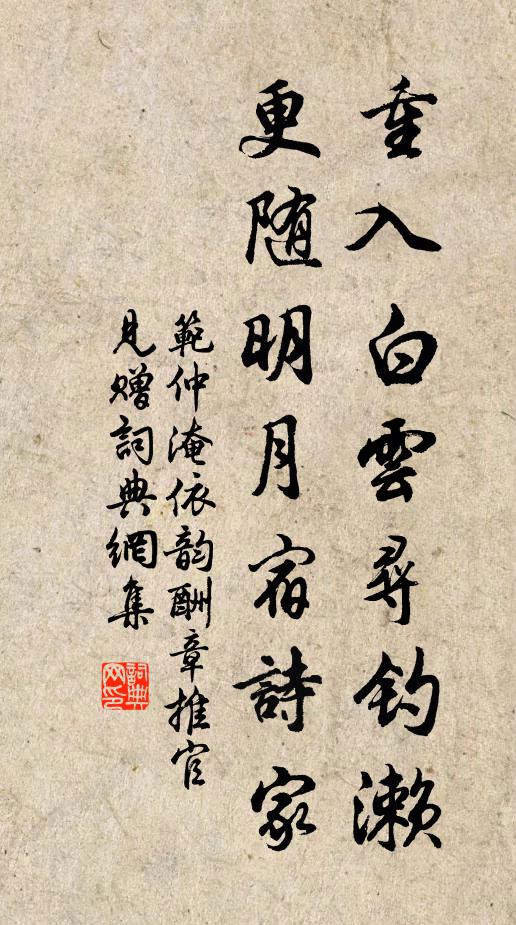 重入白雲尋釣瀨
更随明月宿詩家
範仲淹依韵酬章推官
見赠詞典網集
詞典网印